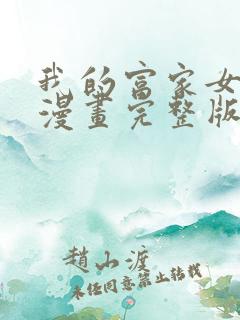 我的富家女
漫畫完整版
趙山渡
未經同意禁止轉載